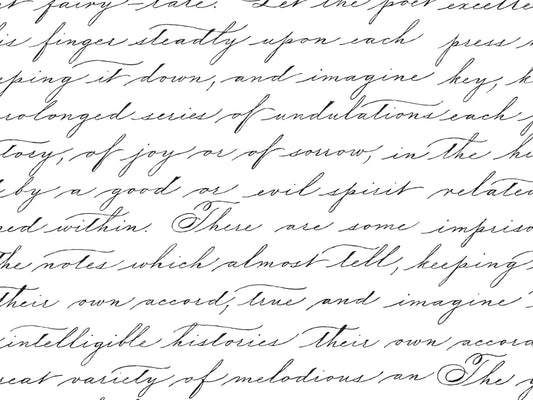 fairy-tale. Let the poet excelle
is finger steadly upon each press
eping it down, and imagine key, k
rolonged series of undulations each
tory, of joy or of sorrow, in the hi
by a good or evil spirit related
ped within. There are some impriso
the notes which almost tell, keeping
their own accord, true and imagine
intelligible histories their own accord
reat variety of melodious an The y